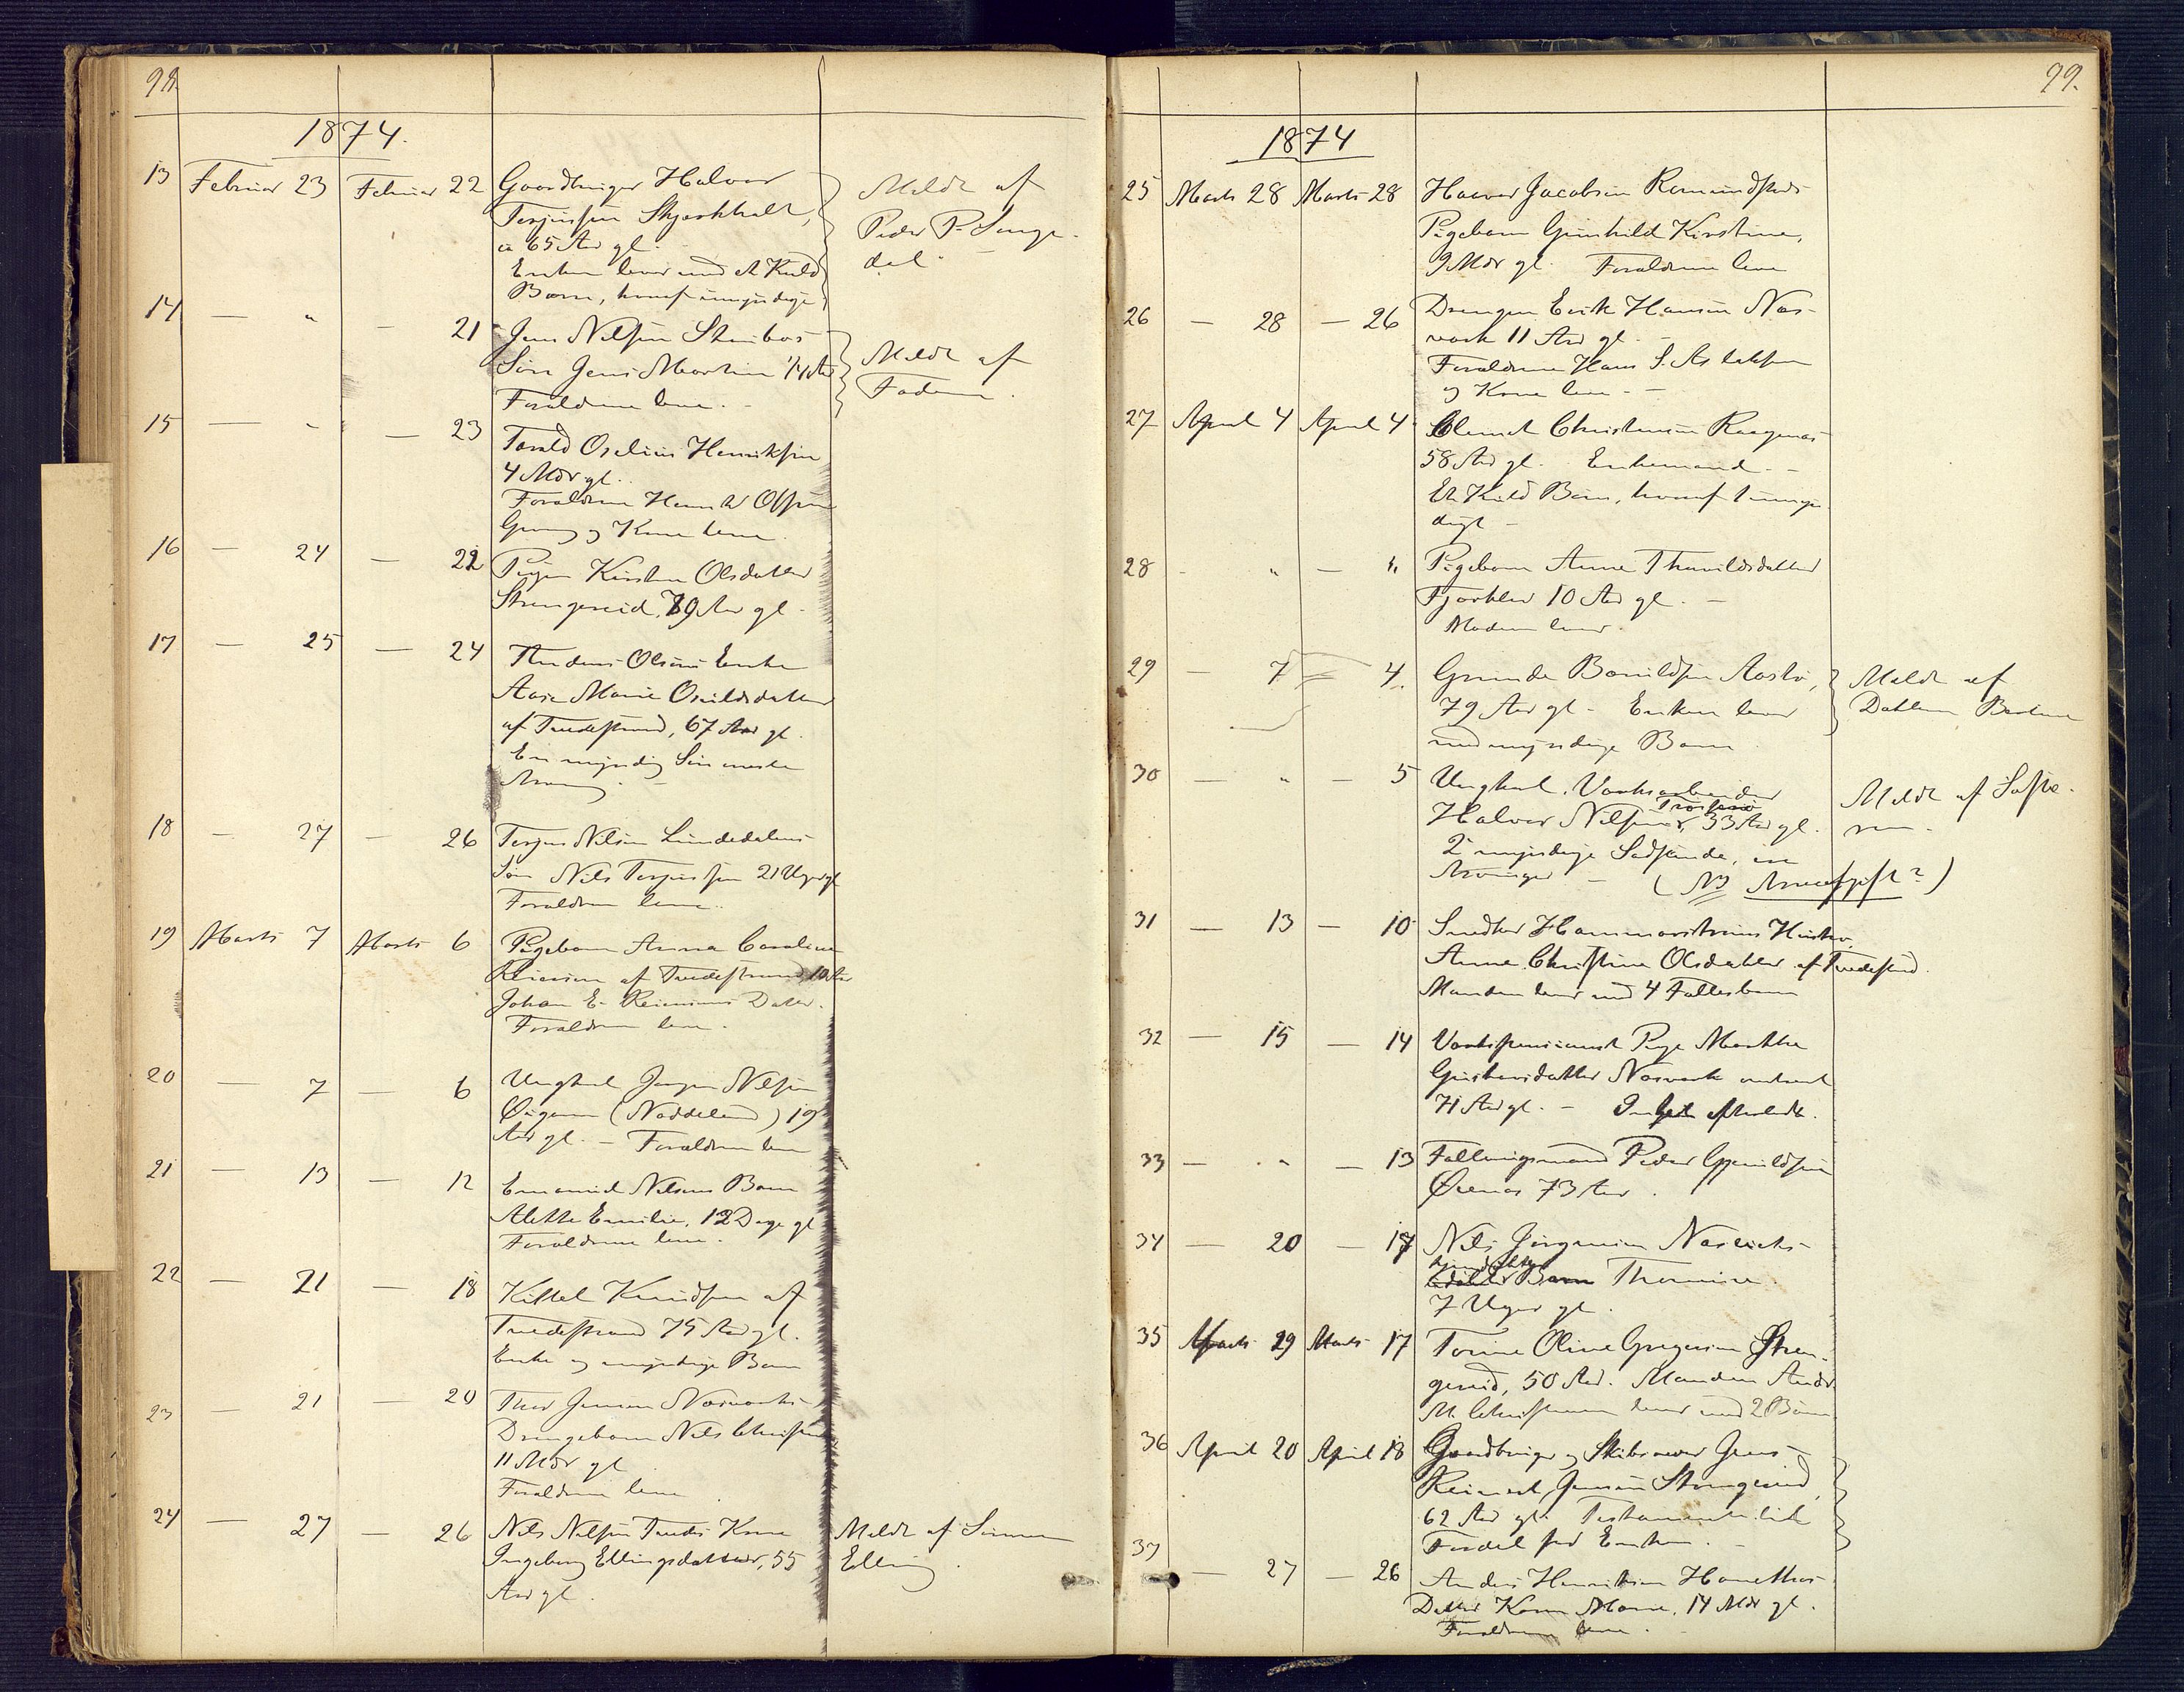 98.
1874.
13 Februar 23 Februar 22 Gaardbruger Halvor
Terjussen Skjerkholt,
a 65 Aar gl.
Enken lever med et Kuld
Børn, hvoraf umyndige
Meldt af
Peder P. Songe-
dal.
14 — " — 21 Jens Nilsen Stenbos
Søn Jens Martin 1/4 Aar
Forældrene leve.
Meldt af
Faderen.
15 — " — 23 Torvald Oselius Henriksen
4 Mdr gl.
Forældrene Henrik Olsen
og Kone leve.
16 — 24 — 22 Pigen Kirsten Olsdatter
Strengereid, 79 Aar gl.
17 — 25 — 24 Anders Olsens Enke
Aase Marie Osuldsdatter
af Tvedestrand, 67 Aar gl.
En myndig Søn eneste
Arving.
18 — 27 — 26 Terjus Nilsen Lundedalens
Søn Nils Terjussen 21 Uger gl
Forældrene leve.
19 Marts 7 Marts 6 Pigebarn Anna Caroline
Reiersen af Tvedestrand, 10 Aar
Johan E. Reiersens Datter.
Forældrene leve.
20 — 7 — 6 Ungkarl Jørgen Nilsen
(Noddeland) 19
Aar gl. — Forældrene leve
21 — 13 — 12 Emanuel Nilsens Barn
Alette Emilie, 12 Dage gl
Forældrene leve.
22 — 21 — 18 Kittel Knudsen af
Tvedestrand 75 Aar gl.
Enke og myndige Børn
23 — 21 — 20 Thor Jensen Næsverks
Drengebarn Nils Christian
11 Mdr gl
Forældrene leve
24 — 27 — 26 Nils Nilsen Tvedes Kone
Ingeborg Ellingsdatter, 55
Aar gl.
Meldt af Sønnen
Elling.
99.
1874
25 Marts 28 Marts 28 Haavor Jacobsen Romundstads
Pigebarn Gunhild Kirstine,
9 Mdr gl Forældrene leve
26 — 28 — 26 Drengen Erik Hansen Næs-
verk 11 Aar gl. —
Forældrene Hans S. Aslaksen
og Kone leve. —
27 April 4 April 4 Clemet Christensen Raagenæs
58 Aar gl. Enkemand. —
Et Kuld Børn, hvoraf 1 umyn-
digt —
28 - " — " Pigebarn Anne Thorvildsdatter
Fjærkleiv 10 Aar gl. —
Moderen lever.
29 — 7 — 4. Gunder Bovildsen Aaslo,
79 Aar gl. Enken lever
med myndige Børn
Meldt af
Datteren Bertine
30 — " — 5 Ungkarl, Værksarbeider
Halvor Nilsen, 33 Aar gl.
2 myndige Sødskende, ere
Arvinger — (NB Arveafgift?)
Meldt af Søste-
ren.
31 — 13 — 10 Snedker Hammerstrøms Hustru
Anne Christine Olsdatter af Tvedestrand.
Manden lever med 4 Fællesbørn
32 — 15 — 14 Værkspensionist Pige Marthe
Gustavsdatter Næsverk omtrent
71 Aar gl. — Intet efterladt.
33 — " — 13 Fattigmand Peder Gjeruldsen
Øienæs 73 Aar.
34 — 20 — 17 Nils Jørgensen Næsverks
Thomine
7 Uger gl.
35 Marts 29 Marts 17 Torine Oline Gregersen Stren-
gereid, 50 Aar. Manden Andr.
M. Christensen lever med 2 Børn
36 April 20 April 18 Gaardbruger og Skibsreder Jens
Reinert Jensen Strengereid,
62 Aar gl. Testamentarisk
Fordel for Enken.
37 — 27 — 26 Anders Henriksen Hanethos
Datter Karen Marie, 14 Mdr gl.
Forældrene leve.